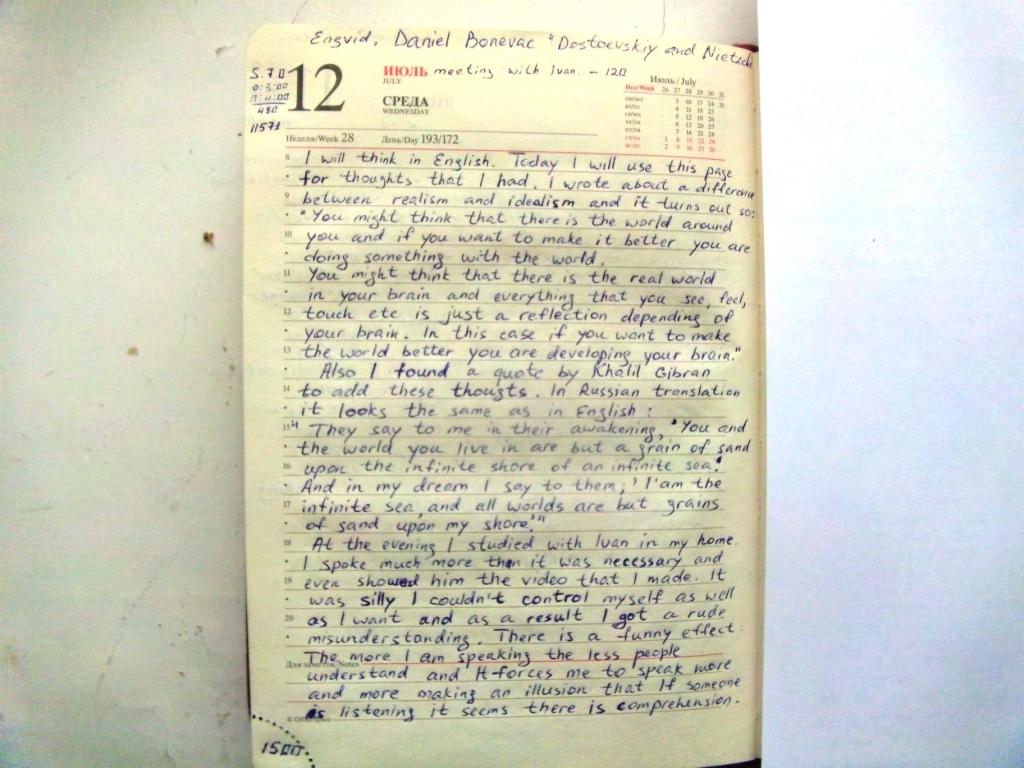 Engvid, Daniel Bonevac "Dostoevskiy and Nietzche
5.70
0:3:00
11571
12
ИЮЛЬ meeting with Ivan. – 120
JULY
СРЕДА
WEDNESDAY
Июль / July
Нед/Week 26 27 28 29 30 31
пн/мо 3 10 17 24 31
вт/tu 4 11 18 25
ср/we 5 12 19 26
чт/th 6 13 20 27
пт/fr 7 14 21 28
сб/sa 1 8 15 22 29
вс/su 2 9 16 23 30
Неделя/Week 28 День/Day 193/172
8 I will think in English. Today I will use this page
for thoughts that I had. I wrote about a difference
9 between realism and idealism and it turns out so:
"You might think that there is the world around
10 you and if you want to make it better you are
doing something with the world.
11 You might think that there is the real world
in your brain and everything that you see, feel,
12 touch etc is just a reflection depending of
your brain. In this case if you want to make
13 the world better you are developing your brain."
Also I found a quote by Khalil Gibran
14 to add these thougts. In Russian translation
it looks the same as in English:
15 "They say to me in their awakening, 'You and
the world you live in are but a grain of sand
16 upon the infinite shore of an infinite sea.'
And in my dream I say to them, 'I am the
17 infinite sea, and all worlds are but grains
of sand upon my shore.'"
18 At the evening I studied with Ivan in my home.
I spoke much more then it was necessary and
19 even showed him the video that I made. It
was silly I couldn't control myself as well
20 as I want and as a result I got a rude
misunderstanding. There is a funny effect:
The more I am speaking the less people
Для заметок/Notes
understand and It forces me to speak more
and more making an illusion that If someone
is listening it seems there is comprehension.